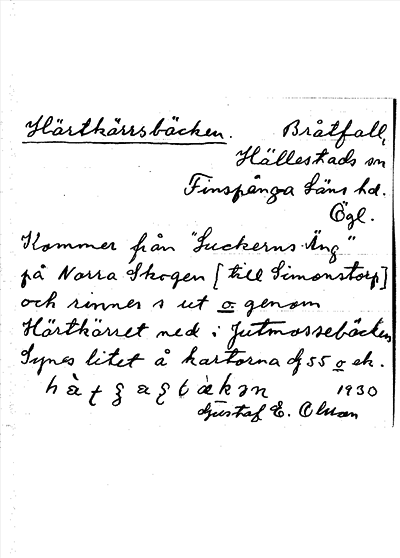 Härtkärrsbäcken. Bråtfall,
Hällestads sn
Finspånga Läns hd.
Ögl.
Kommer från "Suckerns Äng"
på Norra Skogen [till Simonstorp]
och rinner s ut o genom
Härtkärret ned i Jutmossebäcken
Synes litet å kartorna Gf 55 o ek.
1930
Gustaf E. Olsson